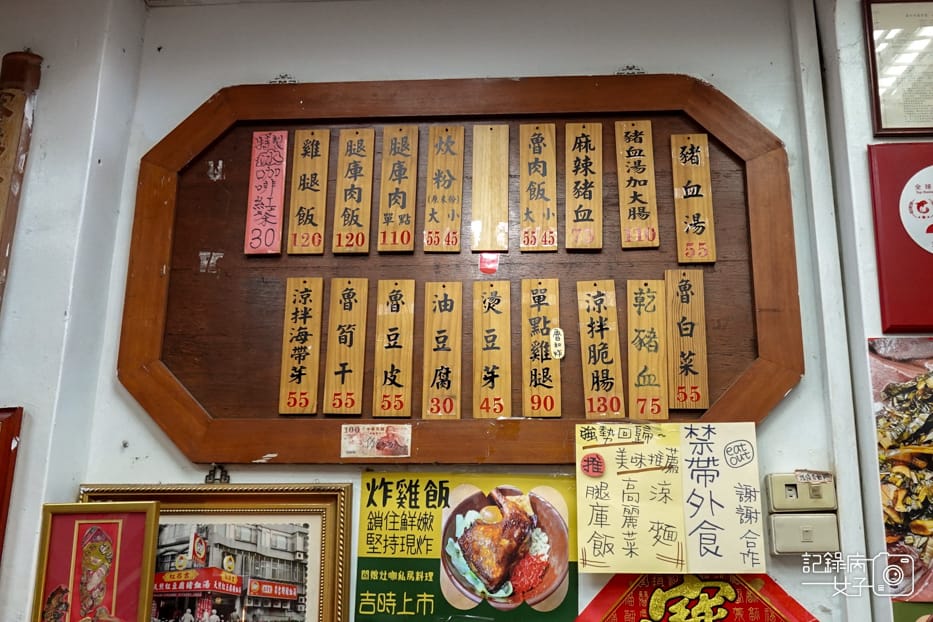 豬血湯 55
豬血湯加大腸 110
麻辣豬血 70
魯肉飯 大 小 55 45
炊粉 (原米粉) 大 小 55 45
腿庫肉 單點 110
腿庫肉飯 120
雞腿飯 120
30
魯白菜 55
乾豬血 75
涼拌脆腸 130
單點雞腿 90
燙豆芽 45
油豆腐 30
魯豆皮 55
魯筍干 55
涼拌海帶芽 55
100
強勢回歸~
美味推薦
推
涼麵
高麗菜
腿庫飯
禁帶外食
eat out
謝謝合作
炸雞飯
鎖住鮮嫩
堅持現炸
吉時上市
記錄病
女子